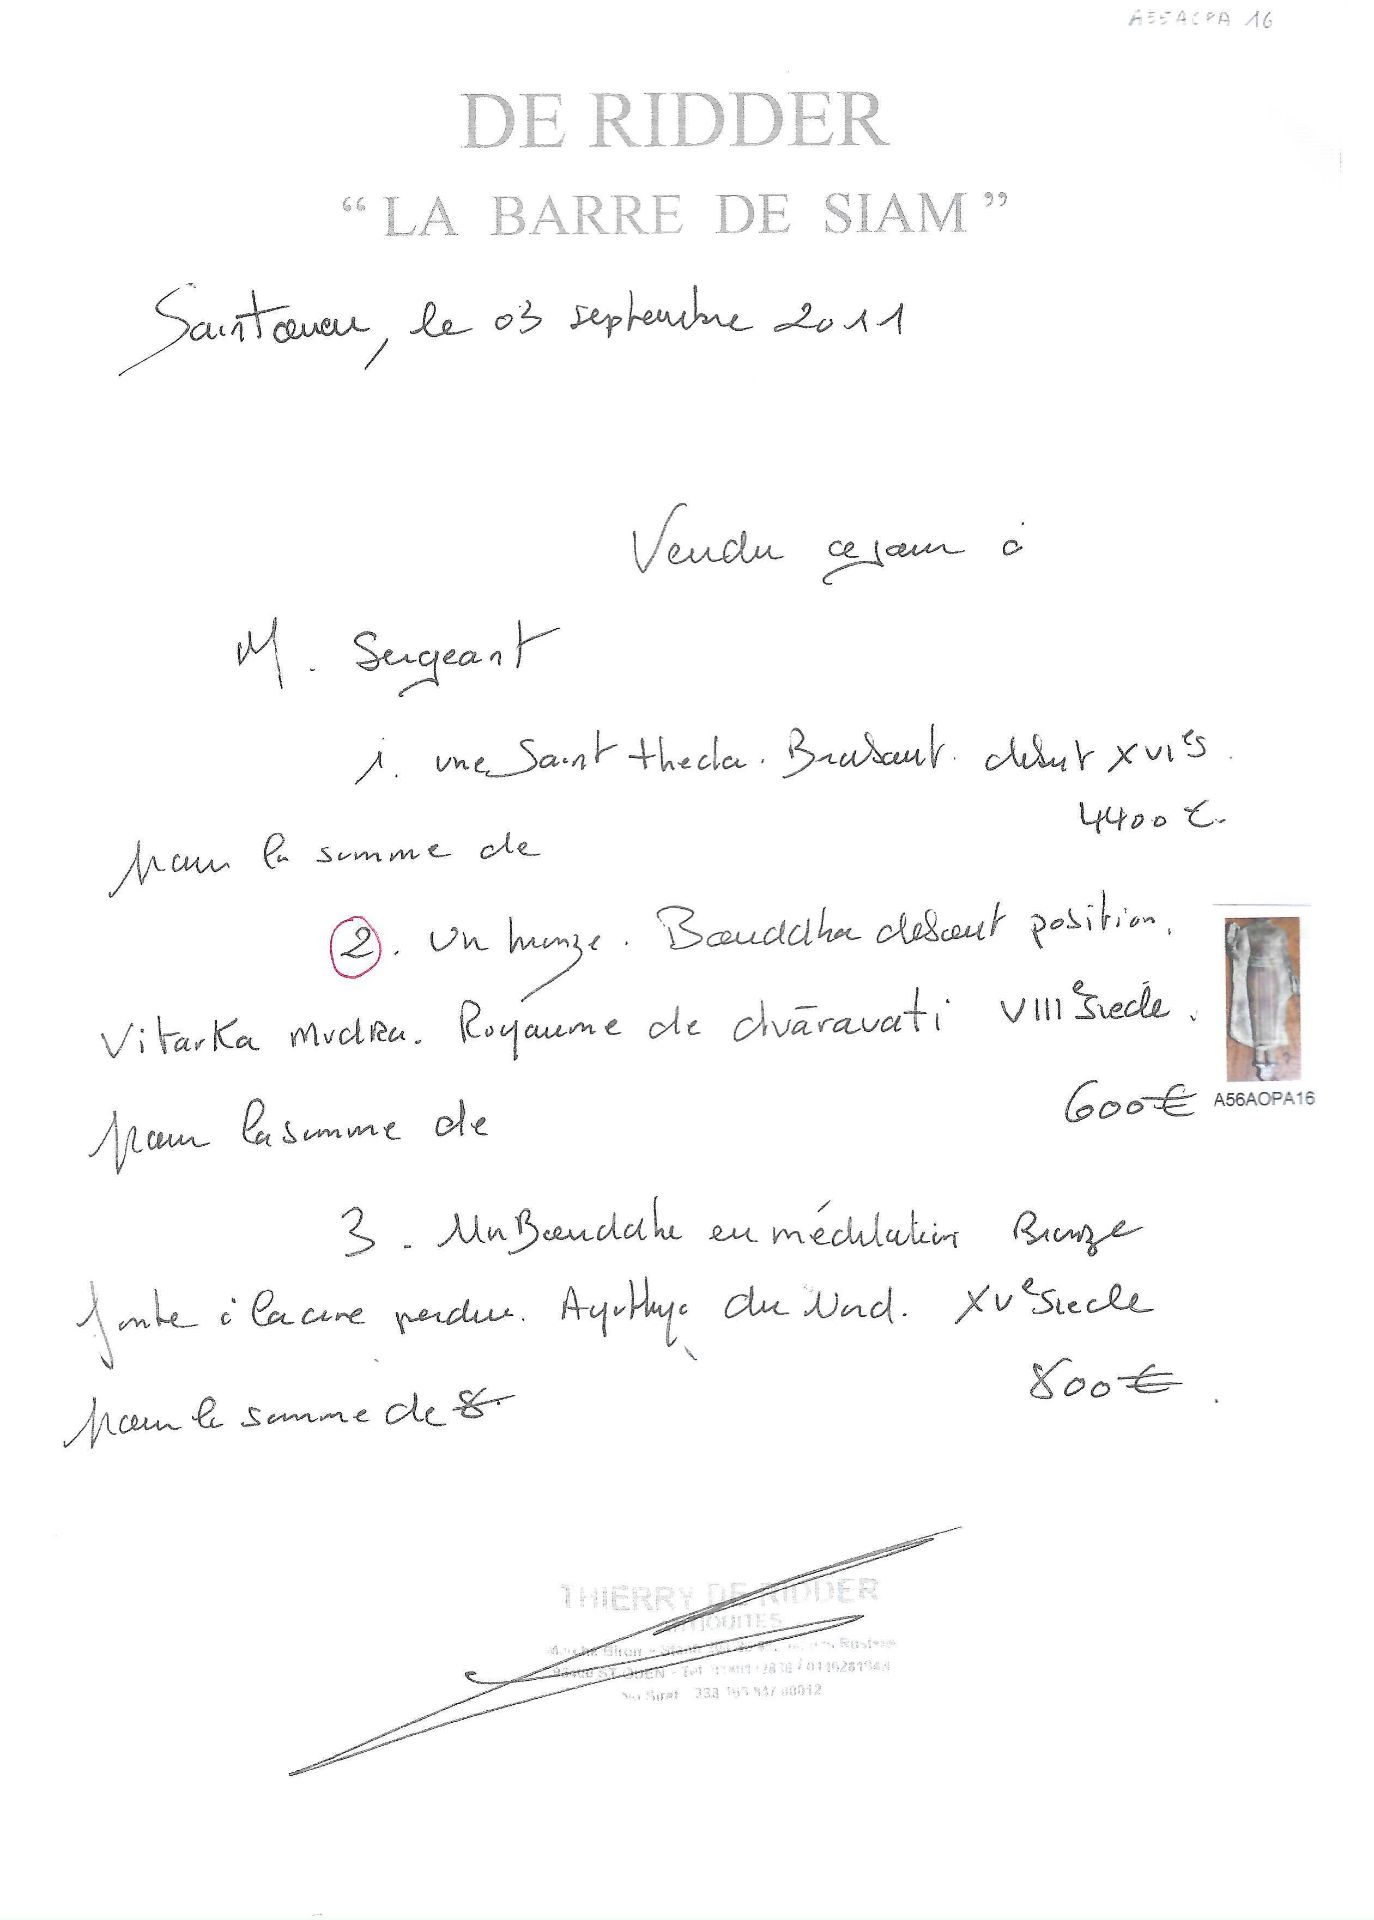 A55ACPA 16
DE RIDDER
“ LA BARRE DE SIAM ”
Saint ouen, le 03 septembre 2011
Vendu ce jour à
M. Sergeant
1. une Saint thecla. Brabant. début XVIes.
4400 €.
pour la somme de
2. un bronze. Bouddha debout position.
Vitarka mudra. Royaume de dvāravati VIIIe siecle.
600 €
A56AOPA16
pour la somme de
3. Un Bouddha en méditation Bronze
fonte à la cire perdue. Ayuthya du Nord. XVe siecle
800 €.
pour la somme de 8
THIERRY DE RIDDER
ANTIQUITES
Biron
ST OUEN - Tel
Siret 333